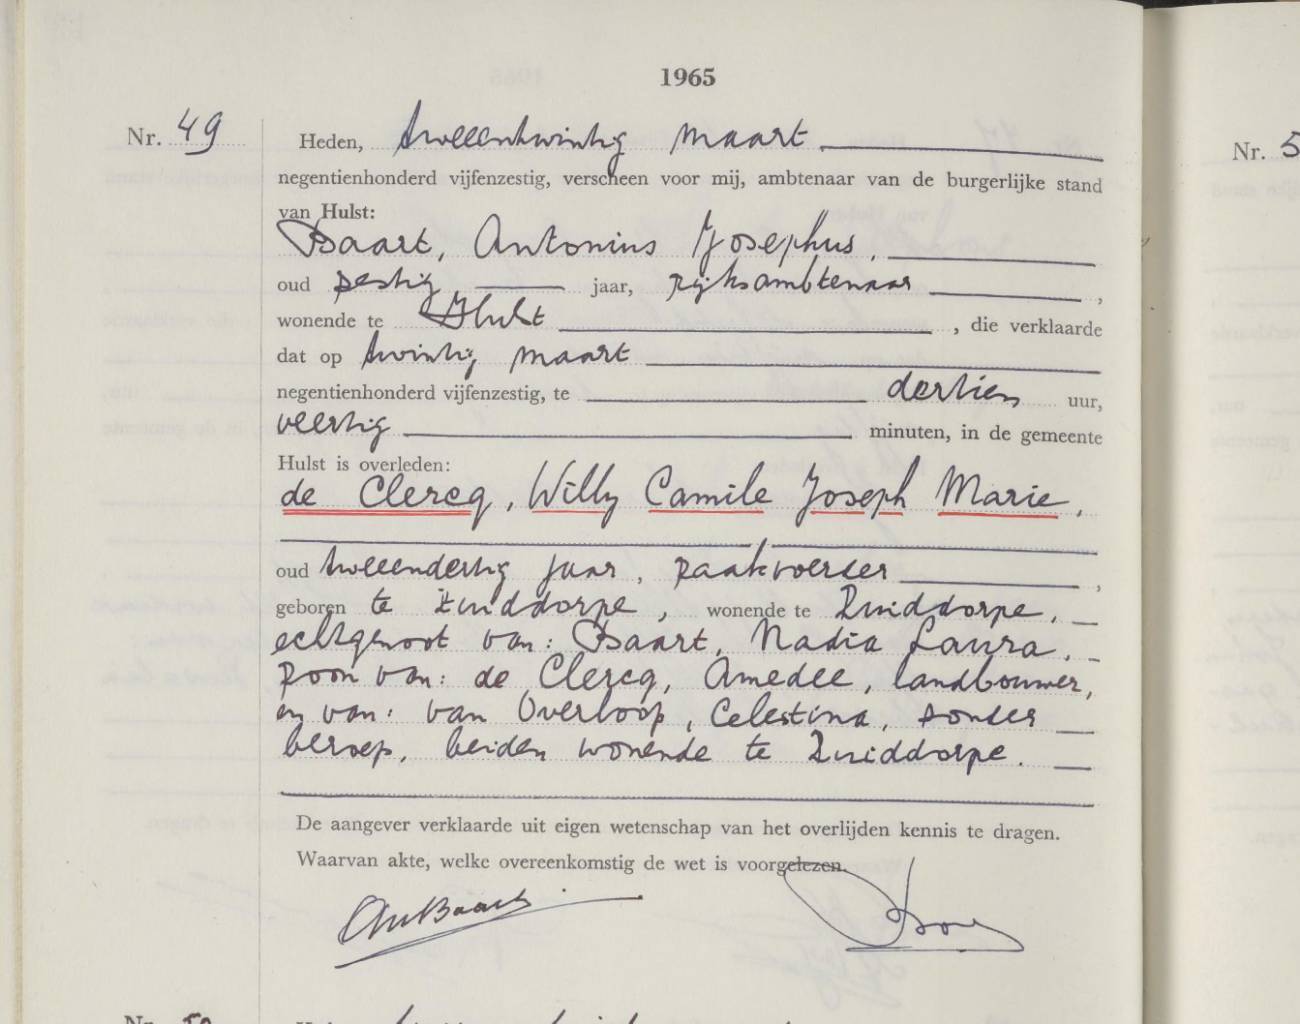 1965
Nr. 49 Heden, tweeentwintig maart
negentienhonderd vijfenzestig, verscheen voor mij, ambtenaar van de burgerlijke stand
van Hulst:
Baart, Antonius Josephus,
oud zestig jaar, rijksambtenaar ,
wonende te Hulst , die verklaarde
dat op twintig maart
negentienhonderd vijfenzestig, te dertien uur,
veertig minuten, in de gemeente
Hulst is overleden:
de Clercq, Willy Camile Joseph Marie,
oud tweeendertig jaar, zaakvoerder ,
geboren te Zuiddorpe, wonende te Zuiddorpe,
echtgenoot van: Baart, Nadia Laura.
zoon van: de Clercq, Amedee, landbouwer,
en van: van Overloop, Celestina, zonder
beroep, beiden wonende te Zuiddorpe.
De aangever verklaarde uit eigen wetenschap van het overlijden kennis te dragen.
Waarvan akte, welke overeenkomstig de wet is voorgelezen.
Nr. 5
Nr. 50